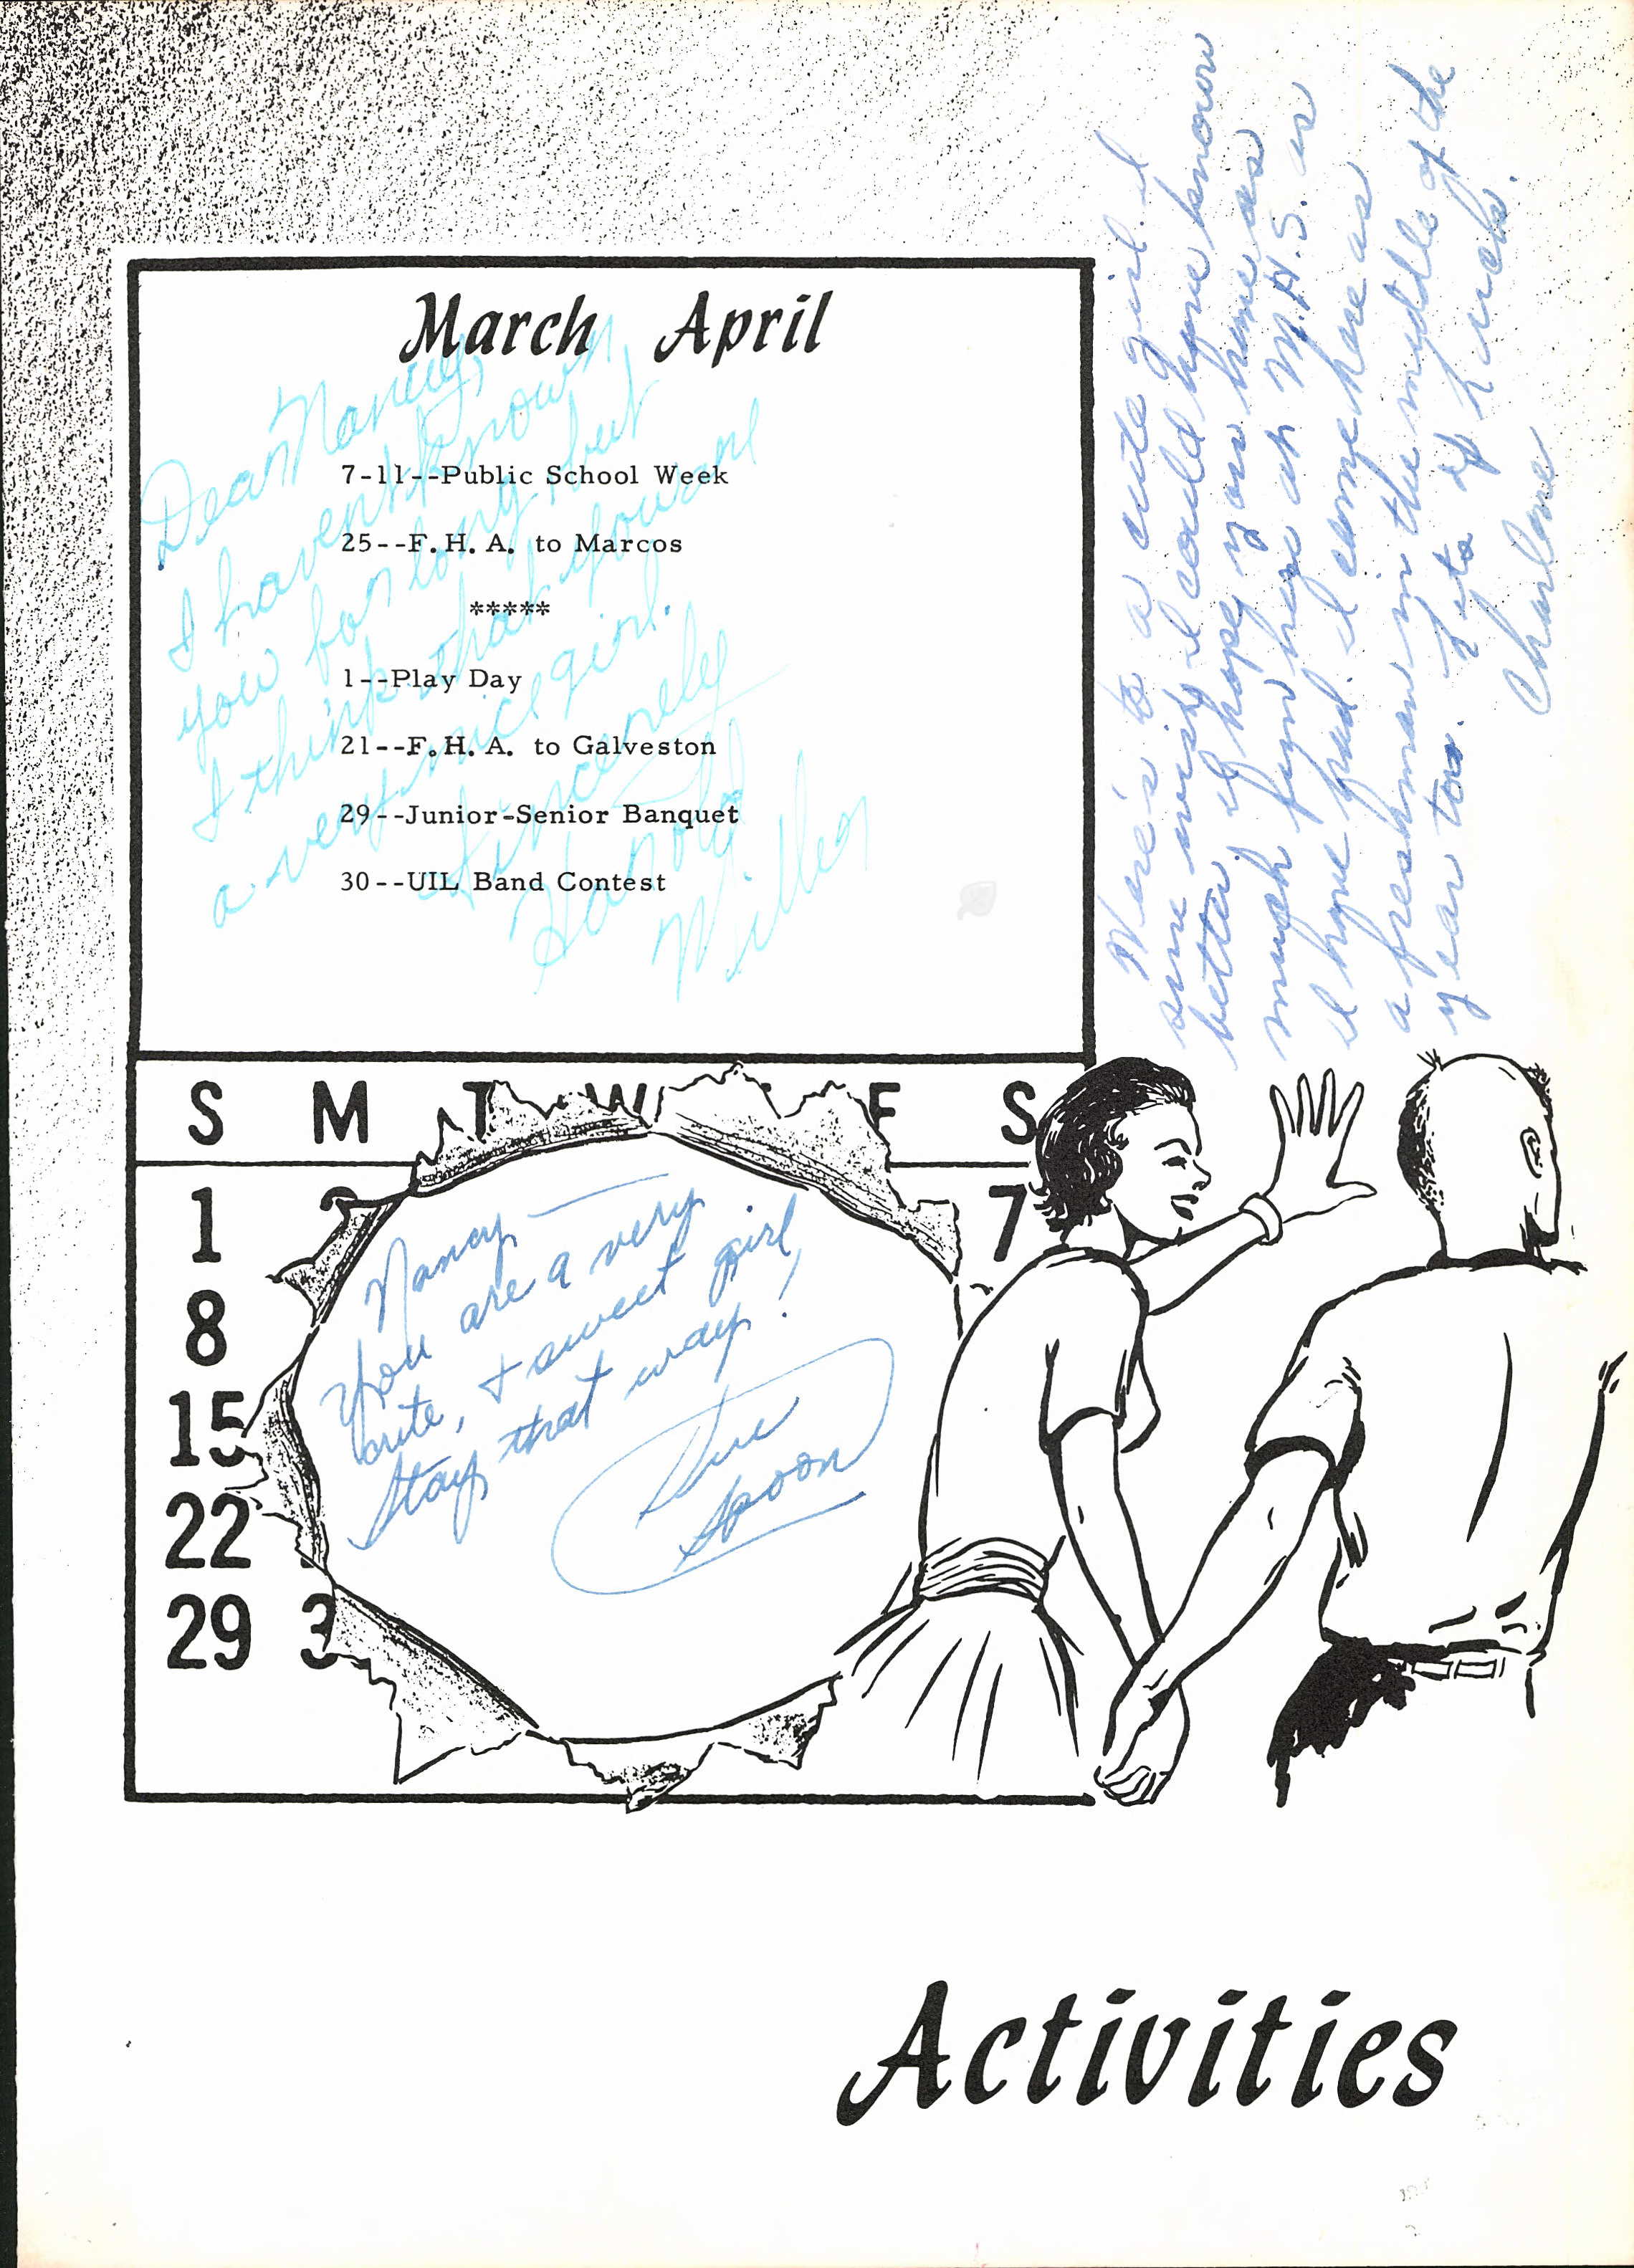 March April
7-11--Public School Week
25--F. H. A. to Marcos
*****
1--Play Day
21--F. H. A. to Galveston
29--Junior-Senior Banquet
30--UIL Band Contest
Dear Nancy,
I haven't known
you for long, but
I think that you are
a very nice girl.
Sincerely
Harold
Miller
Here's to a cute girl I
sure wish I could have known
better. I hope you have as
much fun here at M.H.S. as
I have had. I came here as
a freshman in the middle of the
year too. Lots of luck.
Charlene
S M T W F S
1 7
8
15
22
29 3
Nancy—
You are a very
cute, & sweet girl,
Stay that way!
Sue
Spoon
Activities